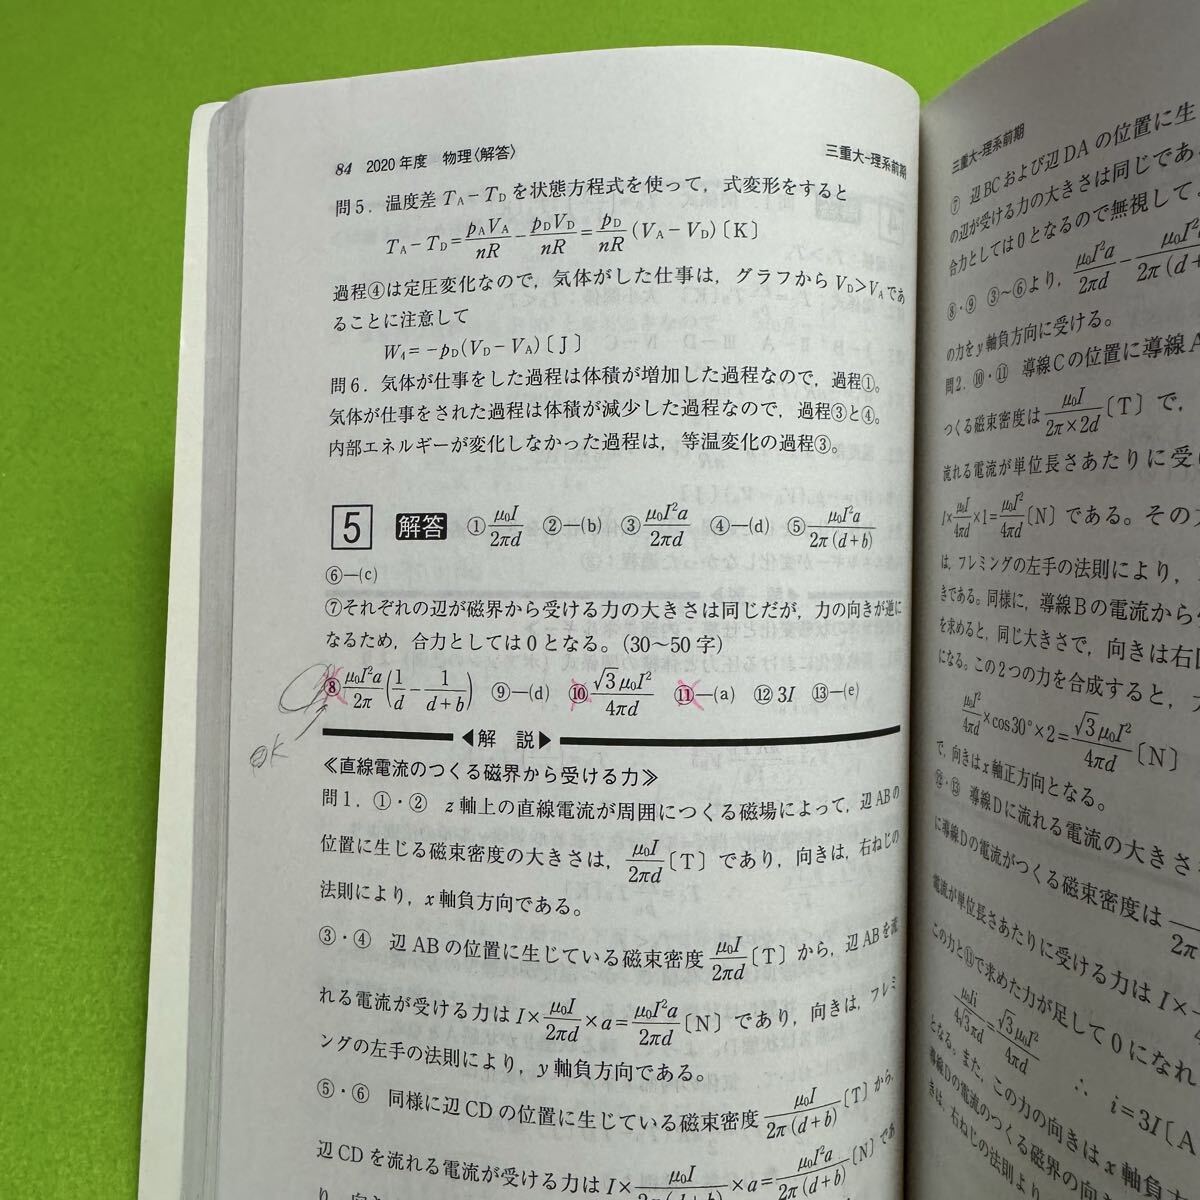 84 2020年度 物理〈解答〉 三重大-理系前期
問5．温度差 T_A－T_D を状態方程式を使って，式変形をすると
T_A－T_D＝p_A V_A/nR－p_D V_D/nR＝p_D/nR (V_A－V_D)〔K〕
過程④は定圧変化なので，気体がした仕事は，グラフから V_D＞V_A であ
ることに注意して
W_4＝－p_D(V_D－V_A)〔J〕
問6．気体が仕事をした過程は体積が増加した過程なので，過程①。
気体が仕事をされた過程は体積が減少した過程なので，過程③と④。
内部エネルギーが変化しなかった過程は，等温変化の過程③。
5 解答 ①μ₀I/2πd ②―(b) ③μ₀I²a/2πd ④―(d) ⑤μ₀I²a/2π(d+b)
⑥―(c)
⑦それぞれの辺が磁界から受ける力の大きさは同じだが，力の向きが逆に
なるため，合力としては0となる。(30～50字)
⑧μ₀I²a/2π(1/d－1/(d+b)) ⑨―(d) ⑩√3μ₀I²/4πd ⑪―(a) ⑫3I ⑬―(e)
ok
◀解 説▶
≪直線電流のつくる磁界から受ける力≫
問1．①・② z軸上の直線電流が周囲につくる磁場によって，辺ABの
位置に生じる磁束密度の大きさは，μ₀I/2πd〔T〕であり，向きは，右ねじの
法則により，x軸負方向である。
③・④ 辺ABの位置に生じている磁束密度μ₀I/2πd〔T〕から，辺ABを流
れる電流が受ける力はI×μ₀I/2πd×a＝μ₀I²a/2πd〔N〕であり，向きは，フレミ
ングの左手の法則により，y軸負方向である。
⑤・⑥ 同様に辺CDの位置に生じている磁束密度μ₀I/2π(d+b)〔T〕から，
辺CDを流れる電流が受ける力はI×μ₀I/2π(d+b)×a＝μ₀I²a/2π(d+b)〔N〕であ
三重大-理系前期
⑦ 辺BCおよび辺DAの位置に生
の辺が受ける力の大きさは同じであ
合力としては0となるので無視して
⑧・⑨ ③～⑥より，μ₀I²a/2πd－μ₀I²/2π(d+
の力をy軸負方向に受ける。
問2．⑩・⑪ 導線Cの位置に導線A
つくる磁束密度はμ₀I/2π×2d〔T〕で，
流れる電流が単位長さあたりに受け
I×μ₀I/4πd×1＝μ₀I²/4πd〔N〕である。その
は，フレミングの左手の法則により，
きである。同様に，導線Bの電流から
を求めると，同じ大きさで，向きは右
になる。この2つの力を合成すると，
μ₀I²/4πd×cos30°×2＝√3μ₀I²/4πd〔N〕
で，向きはx軸正方向となる。
⑫・⑬ 導線Dに流れる電流の大きさ
に導線Dの電流がつくる磁束密度は
電流が単位長さあたりに受ける力はI×
この力と⑪で求めた力が足して0になれ
μ₀Ii/4√3πd＝√3μ₀I²/4πd ∴ i＝3I〔A
となる。また，この力の向きはx軸
導線Dの電流のつくる磁界の向
きは，右ねじの法則より，